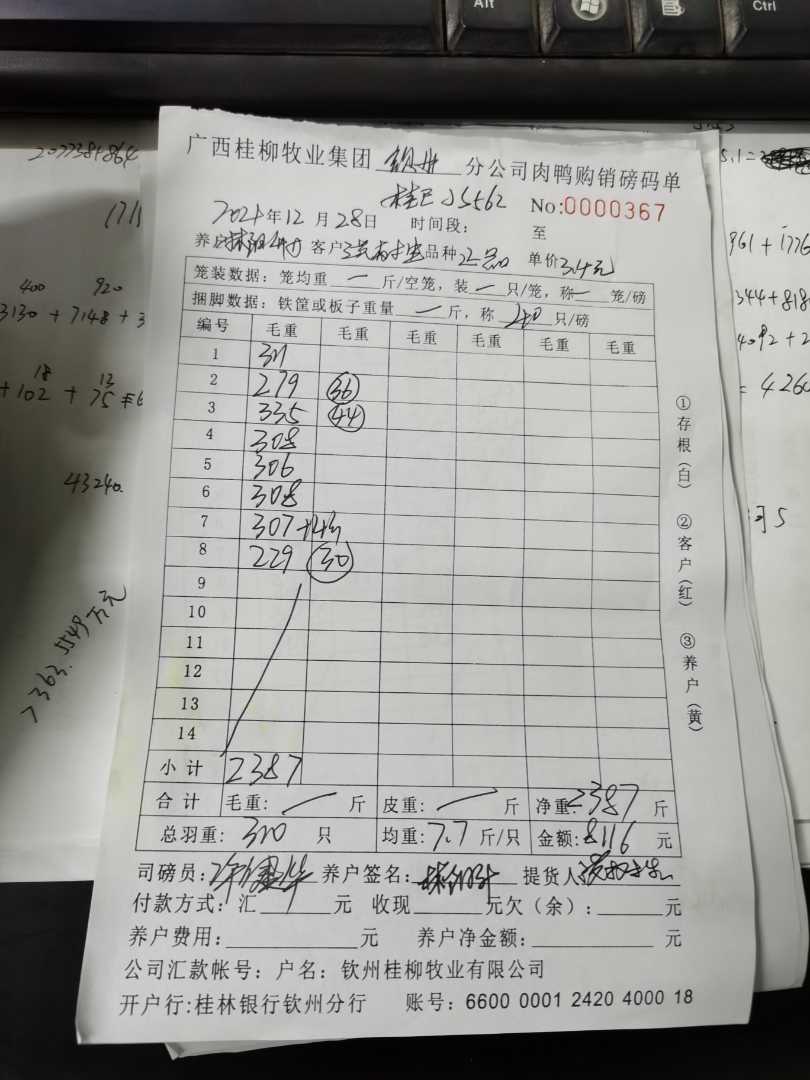 Alt
Ctrl
207738+864
1711
400 920
3130 + 7148 + 3
18 13
+ 102 + 75 = 6
43240.
7363.5549万元
5.1=2
961 + 1776
344 + 818
4092 + 2
= 4260
广西桂柳牧业集团 钦州 分公司肉鸭购销磅码单
桂E J5562 No:0000367
2021年12月28日 时间段: 至
养户 客户 品种 单价3.4元
笼装数据: 笼均重 — 斤/空笼, 装 — 只/笼, 称 — 笼/磅
捆脚数据: 铁筐或板子重量 — 斤, 称 40 只/磅
编号 毛重 毛重 毛重 毛重 毛重 毛重
1 311
2 279 36
3 335 44
4 308
5 306
6 308
7 307+4
8 229 30
9
10
11
12
13
14
小计 2387
合计 毛重: — 斤 皮重: — 斤 净重: 2387 斤
总羽重: 310 只 均重: 7.7 斤/只 金额: 8116 元
司磅员: 养户签名: 提货人:
付款方式: 汇 元 收现 元欠(余): 元
养户费用: 元 养户净金额: 元
公司汇款帐号: 户名: 钦州桂柳牧业有限公司
开户行:桂林银行钦州分行 账号: 6600 0001 2420 4000 18
①存根(白) ②客户(红) ③养户(黄)